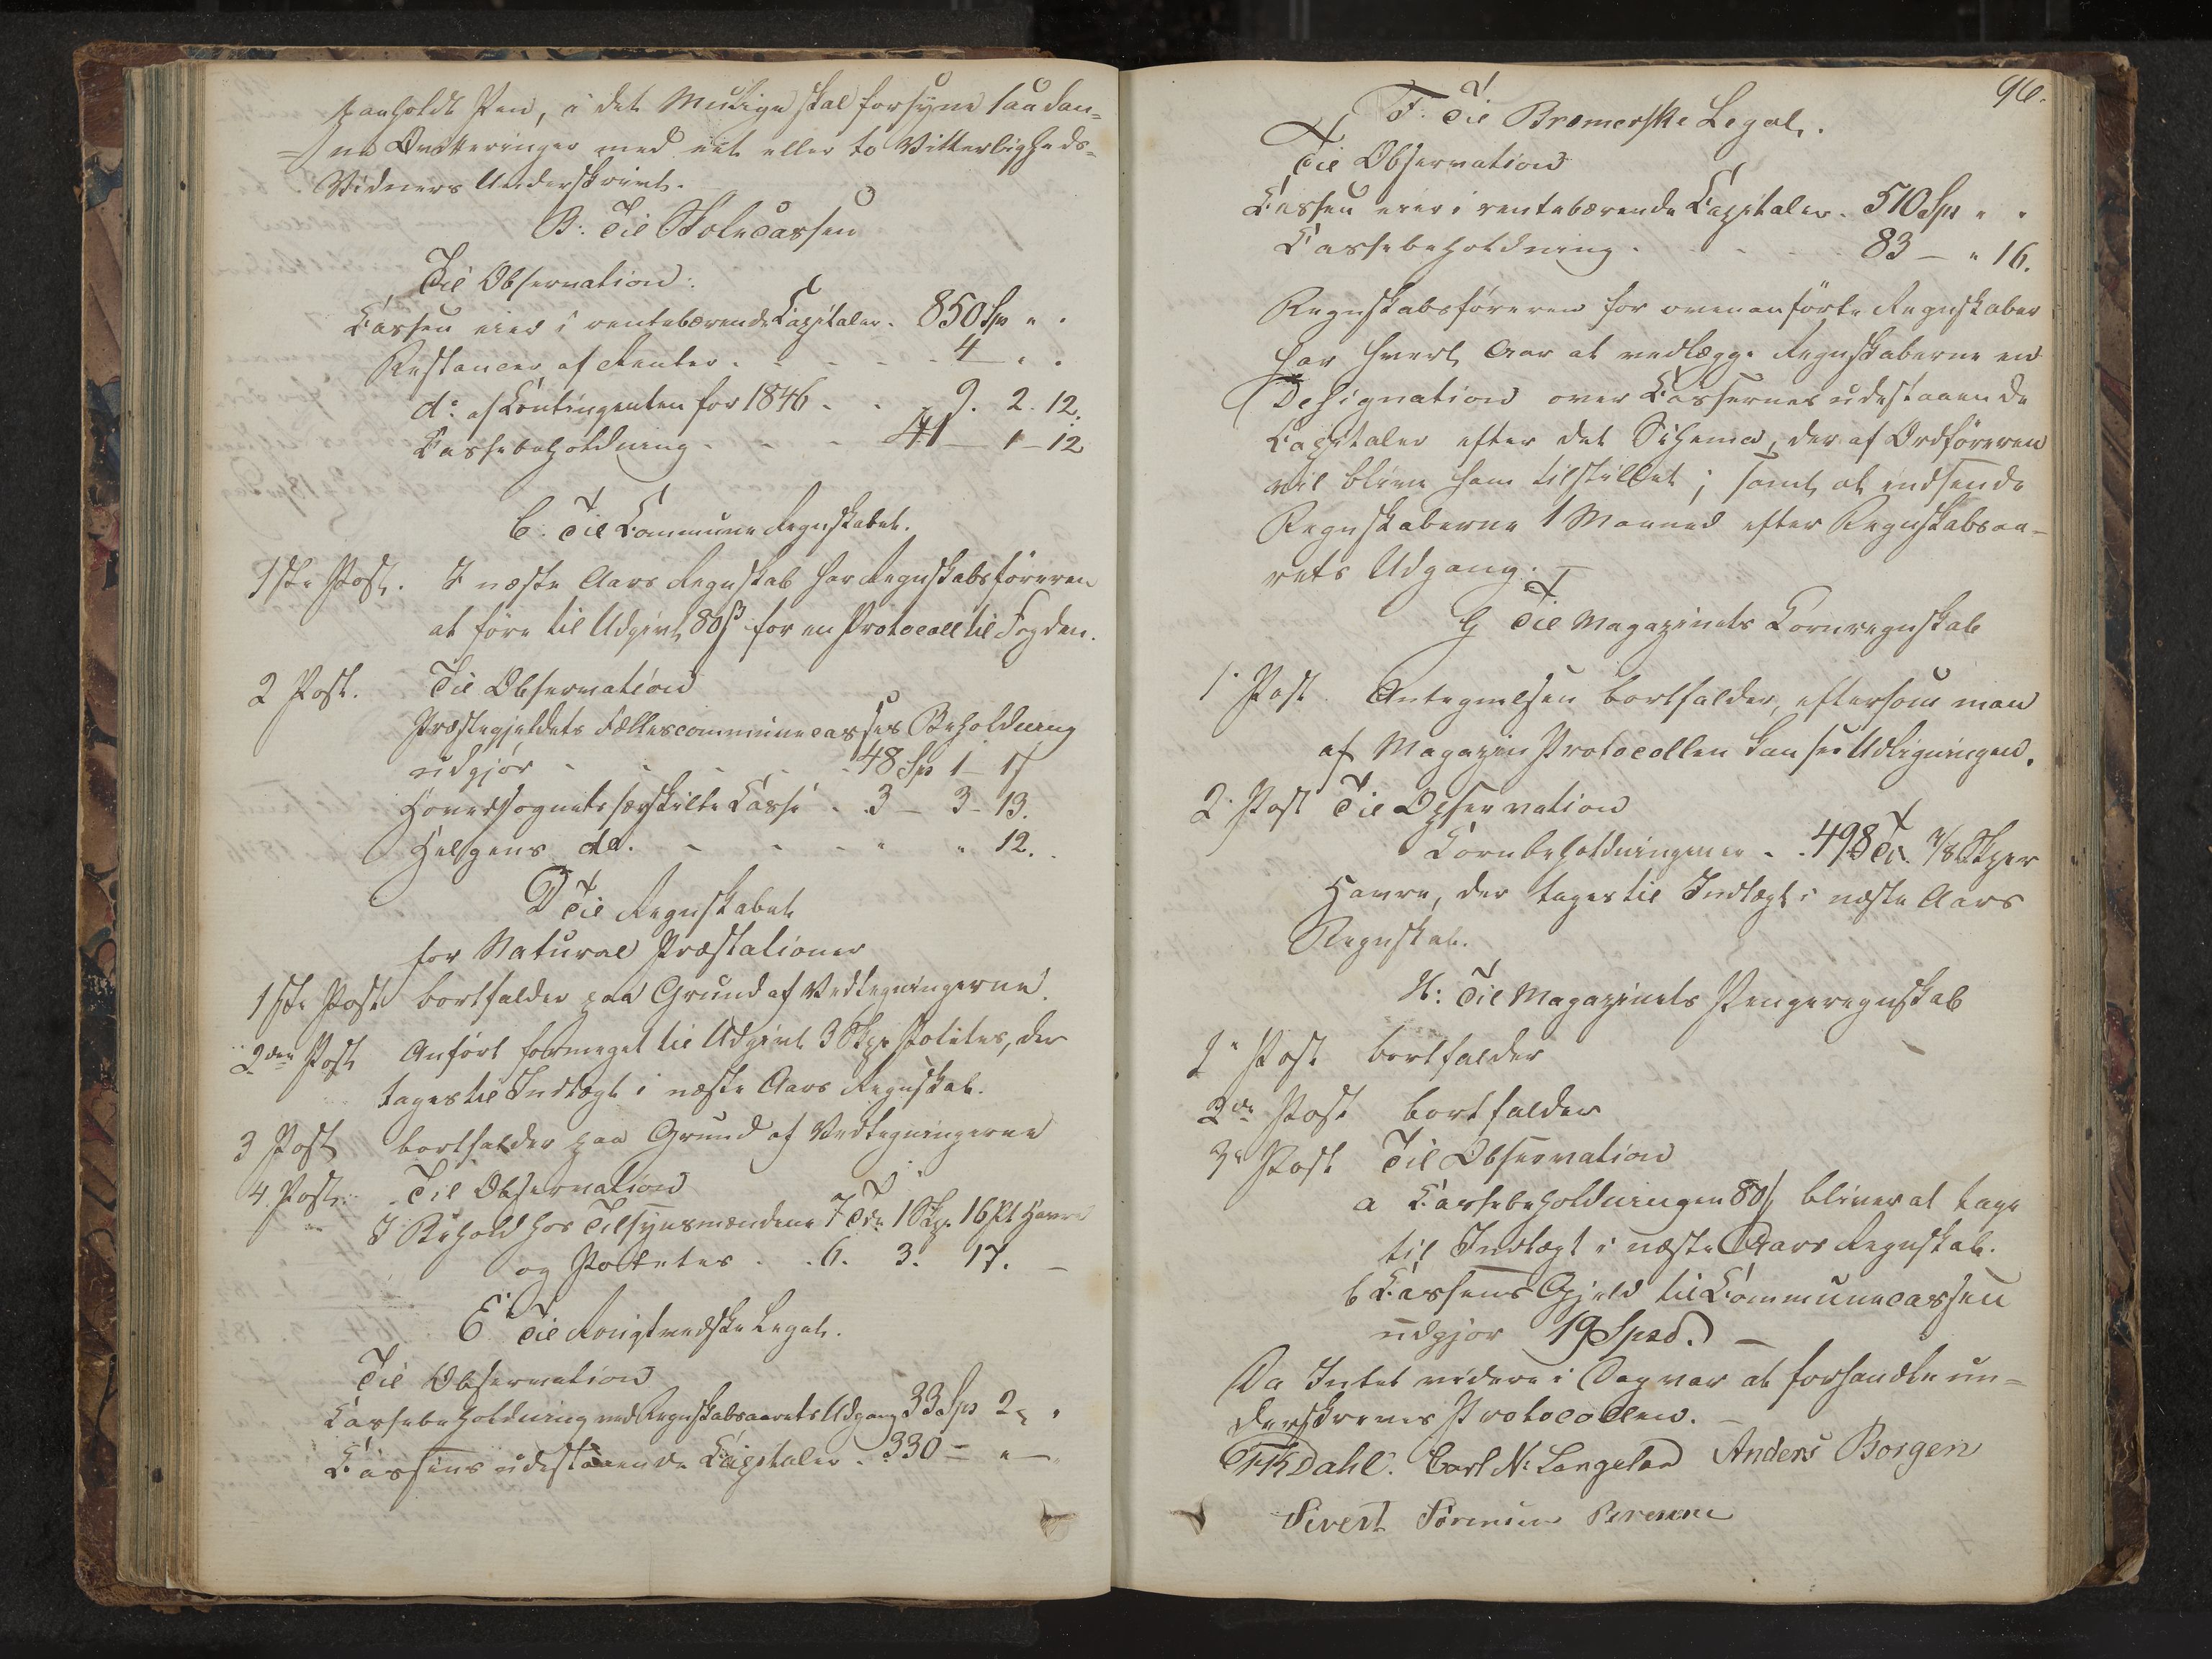 paaholdt Pen, i det Mulige skal forsyne saadan=
=ne Qvitteringer med eet eller to Vitterligheds=
Vidners Underskrivt.
B: Til Skolecassen
Til Observation:
Kassen eier i rentebærende Capitaler. 850 Sp " .
Restancer af Renter . - - - - 4 - " .
do: af Contingenten for 1846 - . - 9. 2. 12.
Kassebeholdning - - - 41 - 1 - 12
C: Til Commune Regnskabet.
1ste Post. I næste Aars Regnskab har Regnskabsføreren
at føre til Udgivt 80 ß for en Protocoll til Fogden.
2 Post. Til Observation
Præstegjeldets Fællescommunecasses Beholdning
udgjør - - - - 48 Sp 1 - 17
Hovedsognets særskilte Casse . 3 - 3 - 13.
Helgens do. - - - " " 12.
D Til Regnskabet
for Natural Præstationer
1ste Post bortfalder paa Grund af Vedtegningerne.
2den Post Anført formeget til Udgivt 3 Skpr Potetes, der
tages til Indtægt i næste Aars Regnskab.
3 Post bortfalder paa Grund af Vedtegningerne
4 Post. Til Observation
I Behold hos Tilsynsmændene 7 Tdr 1 Skp. 16 Pt Havre
og Potetes . . 6. 3. 17. -
E: Til Legat.
Til Observation
Cassebeholdning ved Regnskabsaarets Udgang 33 Sp 2 " "
Kassens udestaaende Capitaler . 330 - " -
96.
F: Til Bremerske Legat.
Til Observation
Kassen eier i rentebærende Capitaler. 510 Sp " "
Kassebeholdning . - - - 83 - " 16.
Regnskabsføreren for ovenanførte Regnskaber
har hvert Aar at vedlægge Regnskaberne en
Designation over Kassernes udestaaende
Capitaler efter det Schema, der af Ordføreren
vil blive ham tilstillet; samt at indsende
Regnskaberne 1 Maaned efter Regnskabsaa-
rets Udgang. -
G Til Magazinets Kornregnskab
1. Post Antegnelsen bortfalder, eftersom man
af Magazin Protocollen kan see Udligningen.
2. Post Til Observation
Kornbeholdningen er - . 498 Td. 7/8 Skper
Havre, der tages til Indtægt i næste Aars
Regnskab.
H: Til Magazinets Pengeregnskab
1e Post bortfalder
2de Post bortfalder
3e Post Til Observation
a Cassebeholdningen 80 ß bliver at tage
til Indtægt i næste Aars Regnskab.
b Kassens Gjeld til Communecassen
udgjør 19 Spd. -
Da Intet videre i Dag var at forhandle un=
derskreves Protocollen. -
Dahl. Carl N: Langeland Anders Borgen
Sivert Sørensen